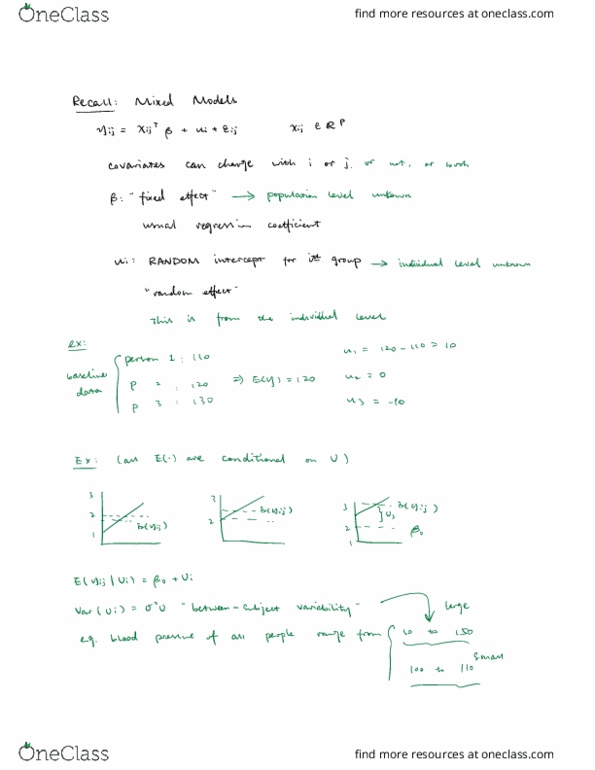 OneClass find more resources at oneclass.com
Recall: Mixed Models
Yij = Xijᵀ β + ui + εij    Xij ∈ ℝᴾ
covariates can change with i or j. or not, or both
β: "fixed effect" → population level unknown
usual regression coefficient
ui: RANDOM intercept for iᵗʰ group → individual level unknown
"random effect"
This is from the individual level
ex:
baseline data
person 1: 110    u₁ = 120 - 110 = 10
p 2: 120 ⇒ E(Y) = 120    u₂ = 0
p 3: 130    u₃ = -10
Ex: (all E(·) are conditional on U)
3 2 1 E(Yij)
3 2 E(Yij)
3 2 1 E(Yij) U₃ β₀
E(Yij | Ui) = β₀ + Ui
Var(Ui) = σ²u "between-subject variability" large
e.g. blood pressure of all people range from 10 to 150
100 to 110 small
OneClass find more resources at oneclass.com